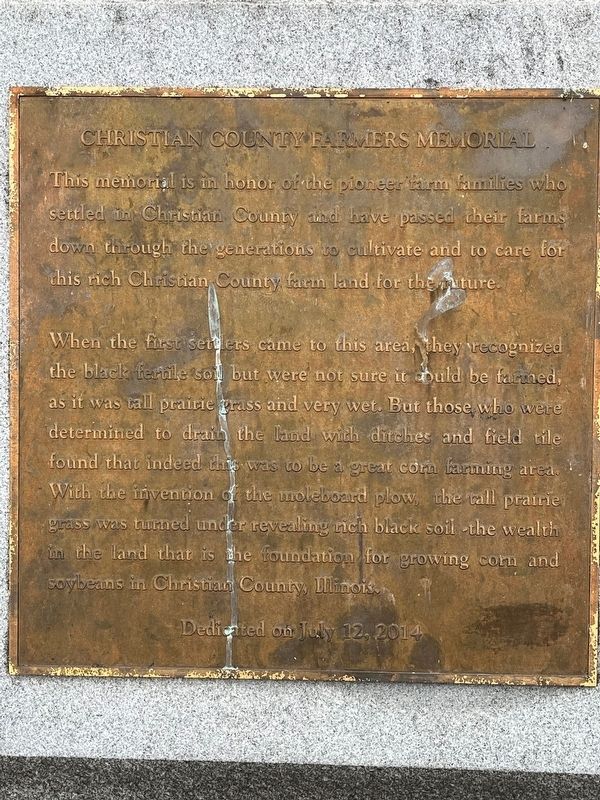 CHRISTIAN COUNTY FARMERS MEMORIAL
This memorial is in honor of the pioneer farm families who
settled in Christian County and have passed their farms
down through the generations to cultivate and to care for
this rich Christian County farm land for the future.
When the first settlers came to this area, they recognized
the black fertile soil but were not sure it could be farmed,
as it was tall prairie grass and very wet. But those who were
determined to drain the land with ditches and field tile
found that indeed this was to be a great corn farming area.
With the invention of the moleboard plow, the tall prairie
grass was turned under revealing rich black soil -the wealth
in the land that is the foundation for growing corn and
soybeans in Christian County, Illinois.
Dedicated on July 12, 2014